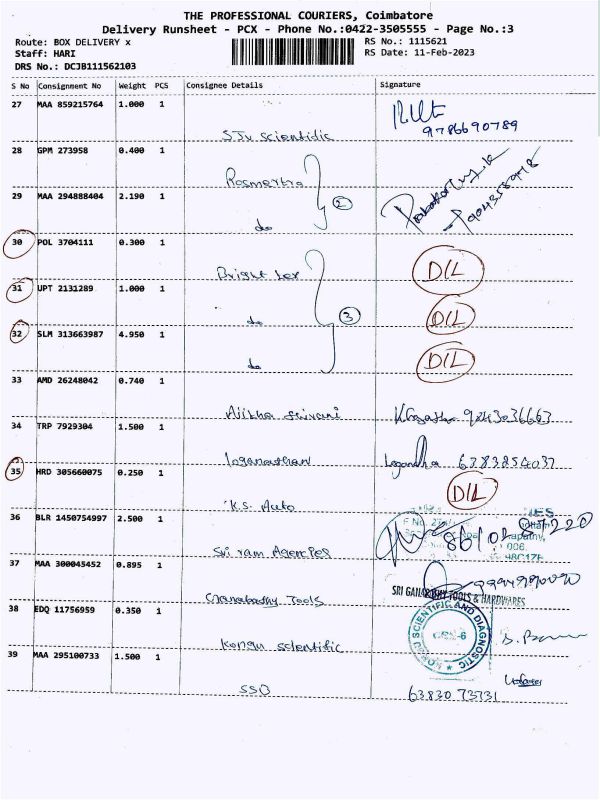 THE PROFESSIONAL COURIERS, Coimbatore
Delivery Runsheet - PCX - Phone No.:0422-3505555 - Page No.:3
Route: BOX DELIVERY x
RS No.: 1115621
Staff: HARI
RS Date: 11-Feb-2023
DRS No.: DCJB111562103
S No Consignment No Weight PCS Consignee Details Signature
27 MAA 859215764 1.000 1
STv scientific
9786690789
28 GPM 273958 0.400 1
Rosmertta
29 MAA 294888404 2.190 1
2
do
30 POL 3704111 0.300 1
Bright Lex D/L
31 UPT 2131289 1.000 1
do 3 D/L
32 SLM 313663987 4.950 1
do D/L
33 AMD 26248042 0.740 1
34 TRP 7929304 1.500 1
loganathan
35 HRD 305660075 0.250 1
K.S. Auto D/L
36 BLR 1450754997 2.500 1
006.
Sri ram Agencies
37 MAA 300045452 0.895 1
SRI GANAPATHY TOOLS & HARDWARES
Ganabadhy Tools
38 EDQ 11756959 0.350 1
KONGU SCIENTIFIC AND DIAGNOSTIC
CBE-6
Kongu scientific
39 MAA 295100733 1.500 1
SSO
63830 73731